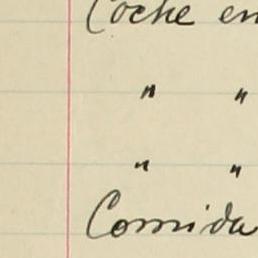 Coche en
" "
" "
Comida